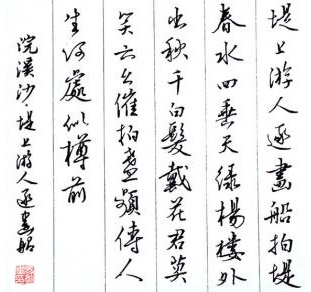 堤上游人逐畫船拍堤
春水四垂天綠楊樓外
出秋千白髮戴花君莫
笑六幺催拍盞頻傳人
生何處似樽前
浣溪沙堤上游人逐畫船